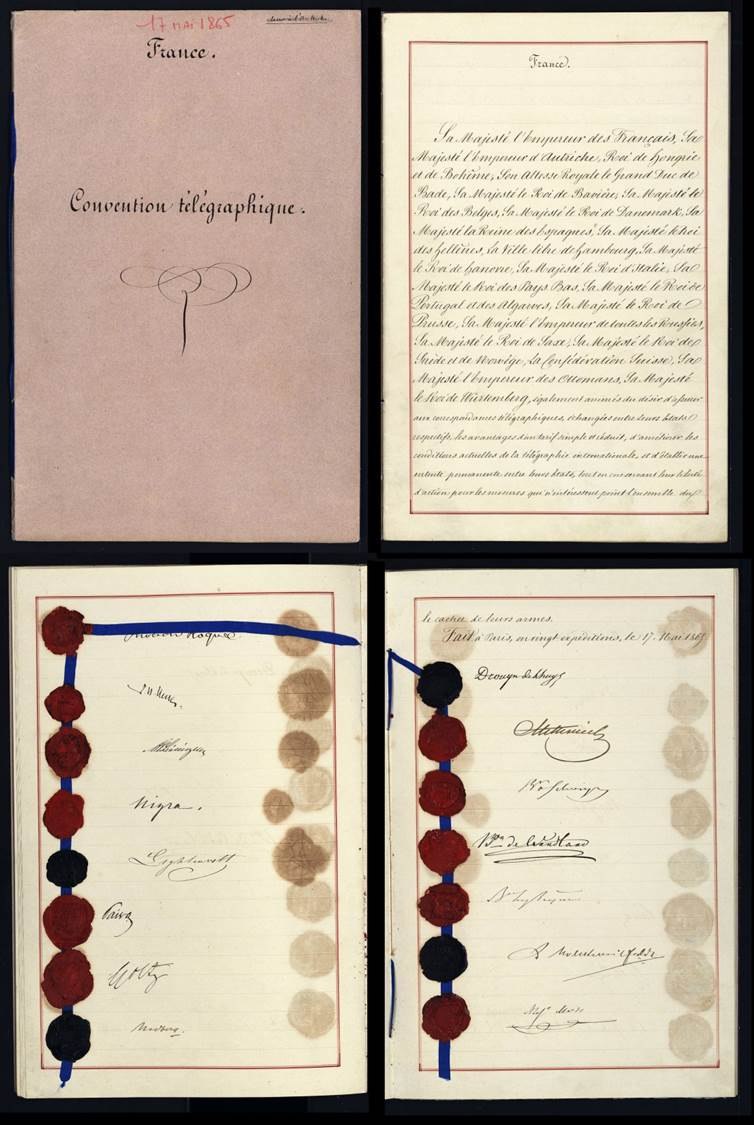 17 MAI 1865
France.
Convention télégraphique.
France.
Sa Majesté l'Empereur des Français, Sa
Majesté l'Empereur d'Autriche, Roi de Hongrie
et de Bohême, Son Altesse Royale le Grand Duc de
Bade, Sa Majesté le Roi de Bavière, Sa Majesté le
Roi des Belges, Sa Majesté le Roi de Danemark, Sa
Majesté la Reine des Espagnes, Sa Majesté le Roi
des Hellènes, La Ville libre de Hambourg, Sa Majesté
le Roi de Hanovre, Sa Majesté le Roi d'Italie, Sa
Majesté le Roi des Pays Bas, Sa Majesté le Roi de
Portugal et des Algarves, Sa Majesté le Roi de
Prusse, Sa Majesté l'Empereur de toutes les Russies,
Sa Majesté le Roi de Saxe, Sa Majesté le Roi de
Suède et de Norwège, La Confédération Suisse, Sa
Majesté l'Empereur des Ottomans, Sa Majesté
le Roi de Würtemberg, également animés du désir d'assurer
aux correspondances télégraphiques, échangées entre leurs Etats
respectifs, les avantages d'un tarif simple et réduit, d'améliorer les
conditions actuelles de la télégraphie internationale, et d'établir une
entente permanente entre leurs Etats, tout en conservant leur liberté
d'action pour les mesures qui n'intéressent point l'ensemble du
Nigra.
Paiva
Goltz
le cachet de leurs armes.
Fait à Paris, en vingt expéditions, le 17 Mai 1865
Drouyn de Lhuys
Metternich